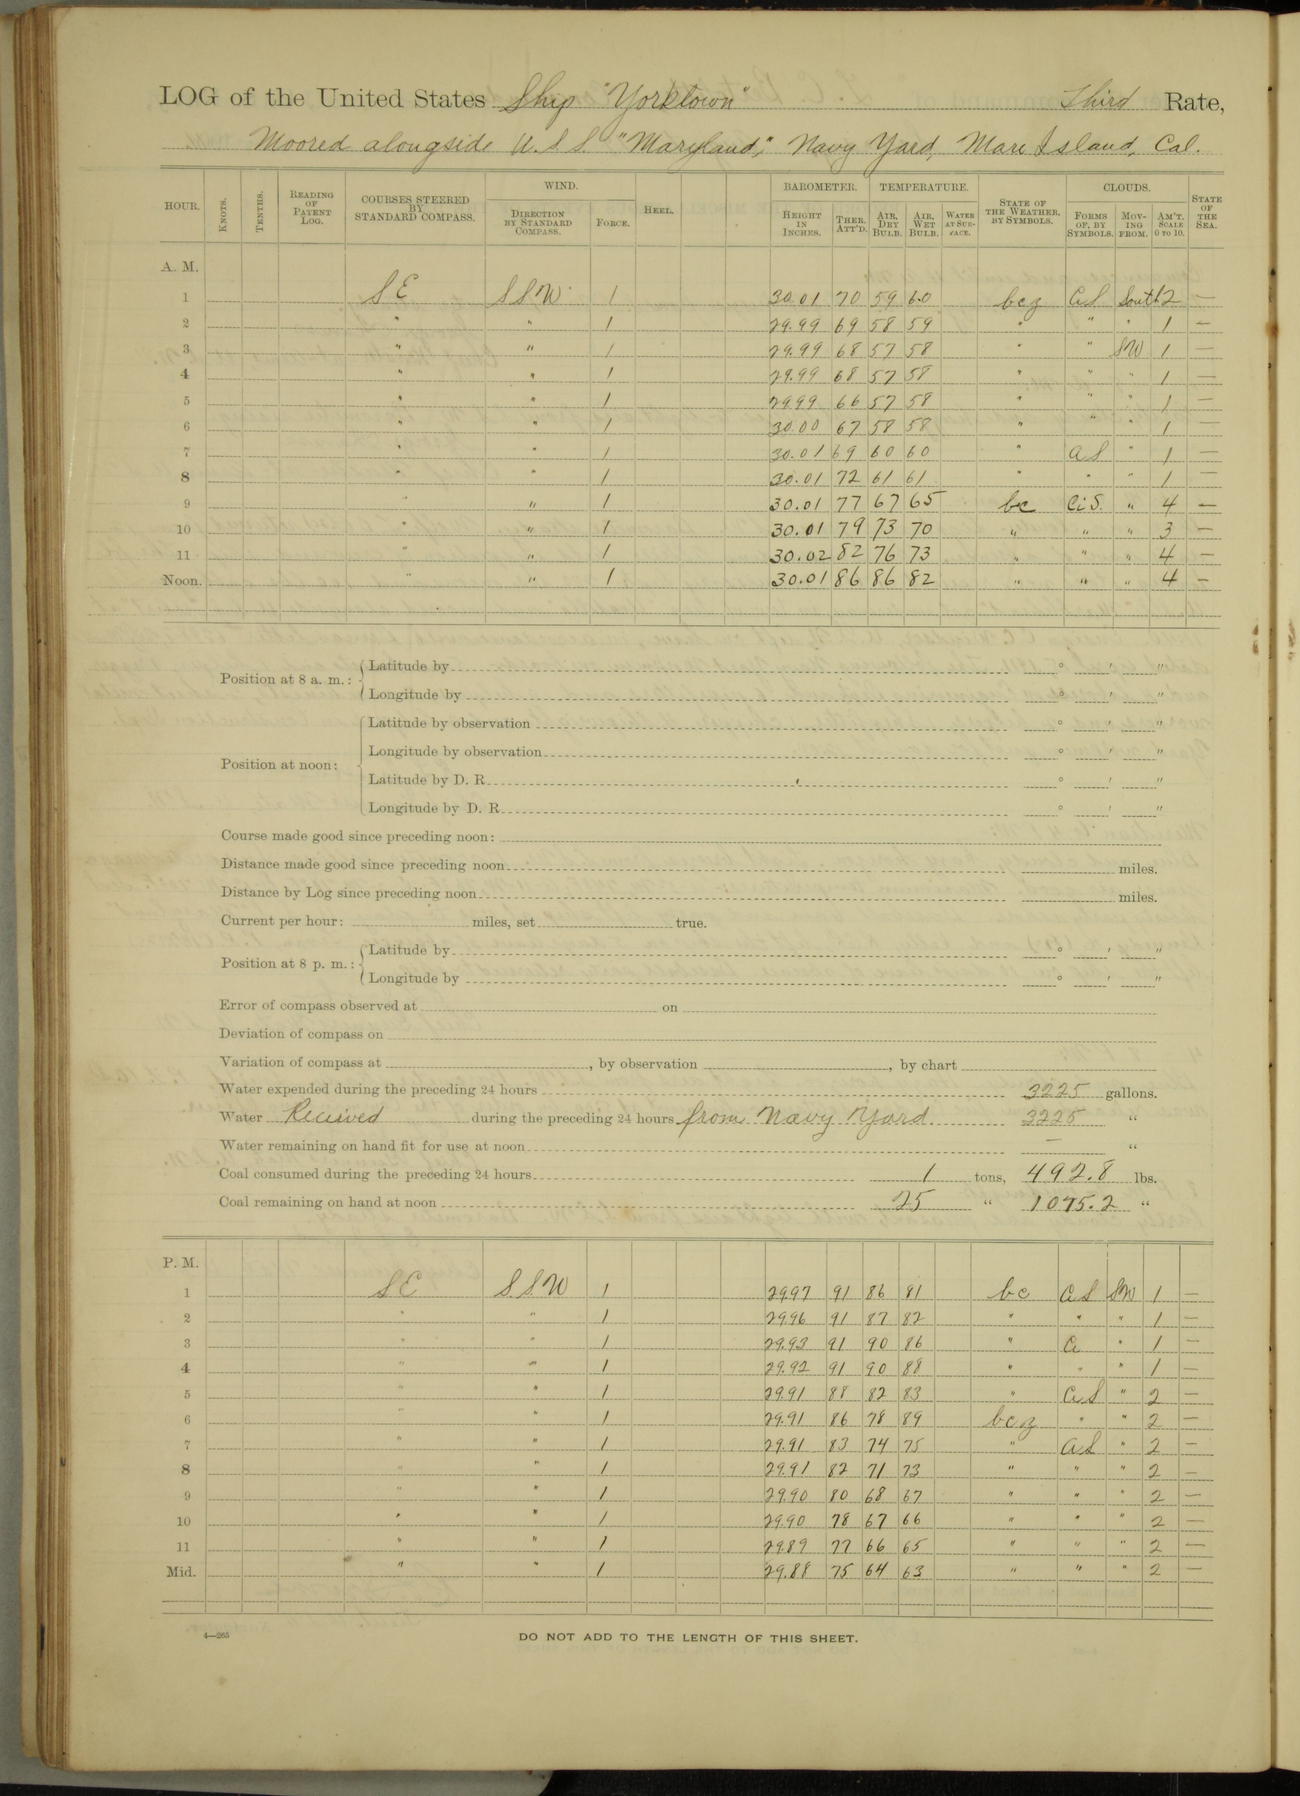 LOG of the United States Ship "Yorktown" Third Rate,
Moored alongside U.S.S. "Maryland," Navy Yard, Mare Island, Cal.
HOUR. KNOTS. TENTHS. READING OF PATENT LOG. COURSES STEERED BY STANDARD COMPASS. WIND. DIRECTION BY STANDARD COMPASS. FORCE. HEEL. BAROMETER. HEIGHT IN INCHES. THER. ATT'D. TEMPERATURE. AIR, DRY BULB. AIR, WET BULB. WATER AT SURFACE. STATE OF THE WEATHER, BY SYMBOLS. CLOUDS. FORMS OF, BY SYMBOLS. MOVING FROM. AM'T. SCALE 0 TO 10. STATE OF THE SEA.
A. M.
1 SE SSW 1 30.01 70 59 60 bcz CiS South 2 —
2 " " 1 29.99 69 58 59 " " " 1 —
3 " " 1 29.99 68 57 58 " " SW 1 —
4 " " 1 29.99 68 57 58 " " " 1 —
5 " " 1 29.99 66 57 58 " " " 1 —
6 " " 1 30.00 67 58 58 " " " 1 —
7 " " 1 30.01 69 60 60 " aS " 1 —
8 " " 1 30.01 72 61 61 " " " 1 —
9 " " 1 30.01 77 67 65 bc CiS. " 4 —
10 " " 1 30.01 79 73 70 " " " 3 —
11 " " 1 30.02 82 76 73 " " " 4 —
Noon. " " 1 30.01 86 86 82 " " " 4 —
Position at 8 a. m.: Latitude by ° ′ ″
Longitude by ° ′ ″
Position at noon: Latitude by observation ° ′ ″
Longitude by observation ° ′ ″
Latitude by D. R. ° ′ ″
Longitude by D. R. ° ′ ″
Course made good since preceding noon:
Distance made good since preceding noon miles.
Distance by Log since preceding noon miles.
Current per hour: miles, set true.
Position at 8 p. m.: Latitude by ° ′ ″
Longitude by ° ′ ″
Error of compass observed at on
Deviation of compass on
Variation of compass at , by observation , by chart
Water expended during the preceding 24 hours 3225 gallons.
Water Received during the preceding 24 hours from Navy Yard 3225 "
Water remaining on hand fit for use at noon — "
Coal consumed during the preceding 24 hours 1 tons, 492.8 lbs.
Coal remaining on hand at noon 25 " 1075.2 "
P. M.
1 SE S.S.W 1 29.97 91 86 81 bc CiS SW 1 —
2 " " 1 29.96 91 87 82 " " " 1 —
3 " " 1 29.93 91 90 86 " Ci " 1 —
4 " " 1 29.92 91 90 88 " " " 1 —
5 " " 1 29.91 88 82 83 " CiS " 2 —
6 " " 1 29.91 86 78 89 bcz " " 2 —
7 " " 1 29.91 83 74 75 " aS " 2 —
8 " " 1 29.91 82 71 73 " " " 2 —
9 " " 1 29.90 80 68 67 " " " 2 —
10 " " 1 29.90 78 67 66 " " " 2 —
11 " " 1 29.89 77 66 65 " " " 2 —
Mid. " " 1 29.88 75 64 63 " " " 2 —
4—265
DO NOT ADD TO THE LENGTH OF THIS SHEET.